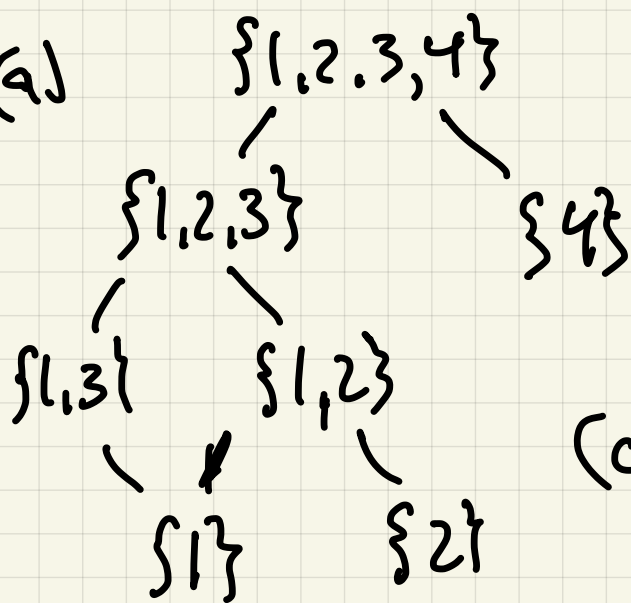 (a) {1,2,3,4}
{1,2,3} {4}
{1,3} {1,2}
(
{1} {2}